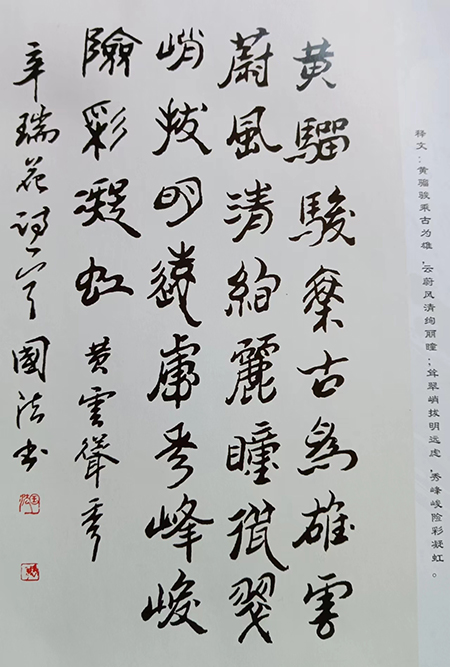 释文:黄骝骏乘古为雄,云蔚风清绚丽瞳;耸翠峭拔明远虚,秀峰峻险彩凝虹。
黄騮駿乘古為雄雲
蔚風清絢麗瞳聳翠
峭拔明遠虛秀峰峻
險彩凝虹
黄雲聳秀
辛瑞花詩一首國法书